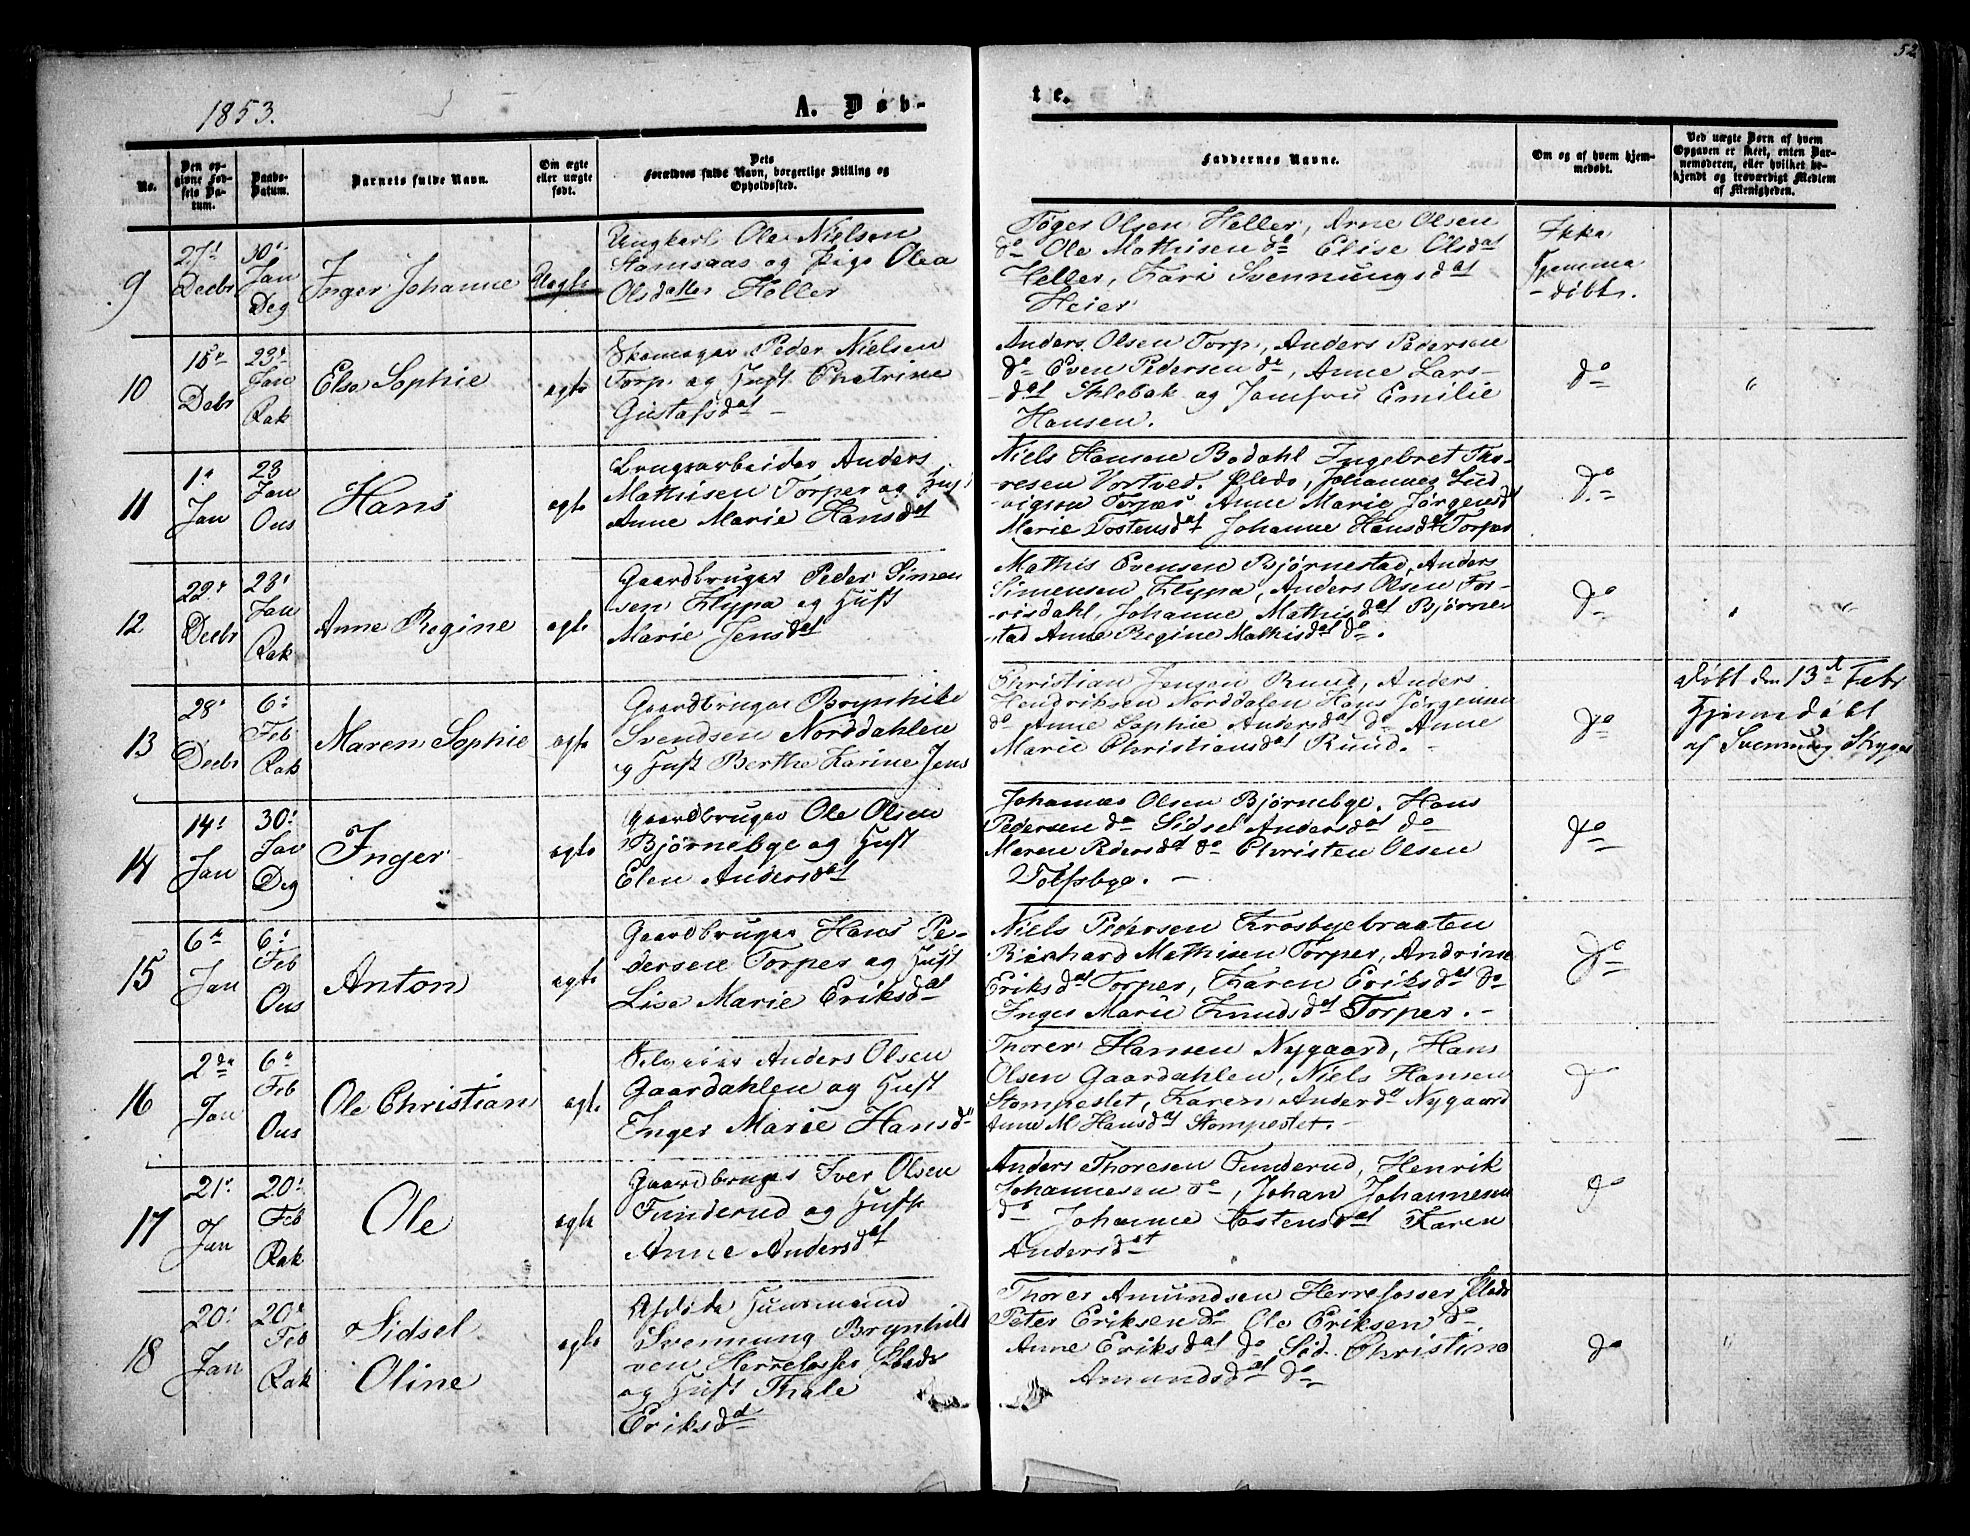 52
1853.
A. Døb-
te.
No.
Den op-
givne Fød-
sels Da-
tum.
Daabs-
Datum.
Barnets fulde Navn.
Om ægte
eller uægte
født.
Dets
Forældres fulde Navn, borgerlige Stilling og
Opholdssted.
Faddernes Navne.
Om og af hvem hjem-
medøbt.
Ved uægte Børn af hvem
Opgaven er skeet, enten Bar-
nemoderen, eller hvilket be-
kjendt og troværdigt Medlem
af Menigheden.
9
27d
Decbr
30'
Jan
Deg
Inger Johanne
Uægte
Ungkarl Ole Nielsen
og Pige Olea
Olsdatter Heller
Tøger Olsen Heller, Arne Olsen
do Ole Mathisen do Elise Olsdat
Heller, Kari Svennungsdat
Heier
Ikke
hjemme
-døbt.
10
15de
Debr
23'
Jan
Rak
Else Sophie
ægte
Skomager Peder Nielsen
Torp og Hust Chatrine
Gustafsdat -
Anders Olsen Torp, Anders Pedersen
do Even Pedersen do, Anne Lars-
-dat Sklebak og Jomfru Emilie
Hansen.
do
"
11
1.
Jan
23
Jan
Ous
Hans
ægte
Brugsarbeider Anders
Mathisen Torper og Hust
Anne Marie Hansdat
Niels Hansen Bødahl Ingebret Tho-
-resen Vortved. Øleds, Johannes Lud
-vigsen Torper Anne Marie Jørgensd
Marie Tostensdat Johanne Hansdat Torper
do
12
22.
Decbr
23'
Jan
Rak
Anne Regine
ægte
Gaardbruger Peder Simen
sen Klypa og Hust
Marie Jensdat
Mathis Evensen Bjørnestad, Anders
Simensen Klypa, Anders Olsen Tor-
risdahl, Johanne Mathisdat Bjørne-
stad Anne Regine Mathisdat do.
do
" "
13
28.
Decbr
6'
Feb
Rak
Maren Sophie
ægte
Gaardbruger Brynhild
Svendsen Norddahlen
og Hust Berthe Karine Jens
Christian Jensen Ruud, Anders
Hendriksen Norddalen Hans Jørgensen
do Anne Sophie Andersdat do Anne
Marie Christiansdat Ruud. -
do
Døbt den 13de Febr
Hjemmedøbt
af Svennung
14
14'
Jan
30'
Jan
Deg
Inger
ægte
Gaardbruger Ole Olsen
Bjørnebye og Hust
Elen Andersdat
Johannes Olsen Bjørnebye. Hans
Pedersen do Sidsel Andersdat do
Maren Pedersdat do Christen Olsen
Tolfsbye. -
do
15
6te
Jan
6'
Feb
Ous
Anton
ægte
Gaardbruger Hans Pe-
dersen Torper og Hust
Lise Marie Eriksdat
Niels Pedersen Krosbyebraaten
Richard Mathisen Torper, Andrine
Eriksdat Torper, Karen Eriksdat do
Inger Marie Knudsdat Torper. -
do
16
2den
Jan
6te
Feb
Ous
Ole Christian
ægte
Selveier Anders Olsen
Gaardahlen og Hust
Inger Marie Hansd
Thorer Hansen Nygaard, Hans
Olsen Gaardahlen, Niels Hansen
Stompestet, Karen Andersd Nygaard
Anne M Hansdat Stompestet. -
do
17
21'
Jan
20'
Feb
Rak
Ole
ægte
Gaardbruger Iver Olsen
Funderud og Hust
Anne Andersdat
Anders Thoresen Funderud, Henrik
Johannesen do, Johan Johannesen
do Johanne Tostensdat Karen
Andersdat
do
18
20'
Jan
20'
Feb
Rak
Sidsel
Oline
ægte
Afdøde Huusmand
Svennung Brynhild
Herrefosser Øleds
og Hust Thale
Eriksd
Thorer Amundsen Herrefosser Øleds
Peter Eriksen do Ole Eriksen do
Anne Eriksdat do Sid. Christine
Amundsdat do
do
"